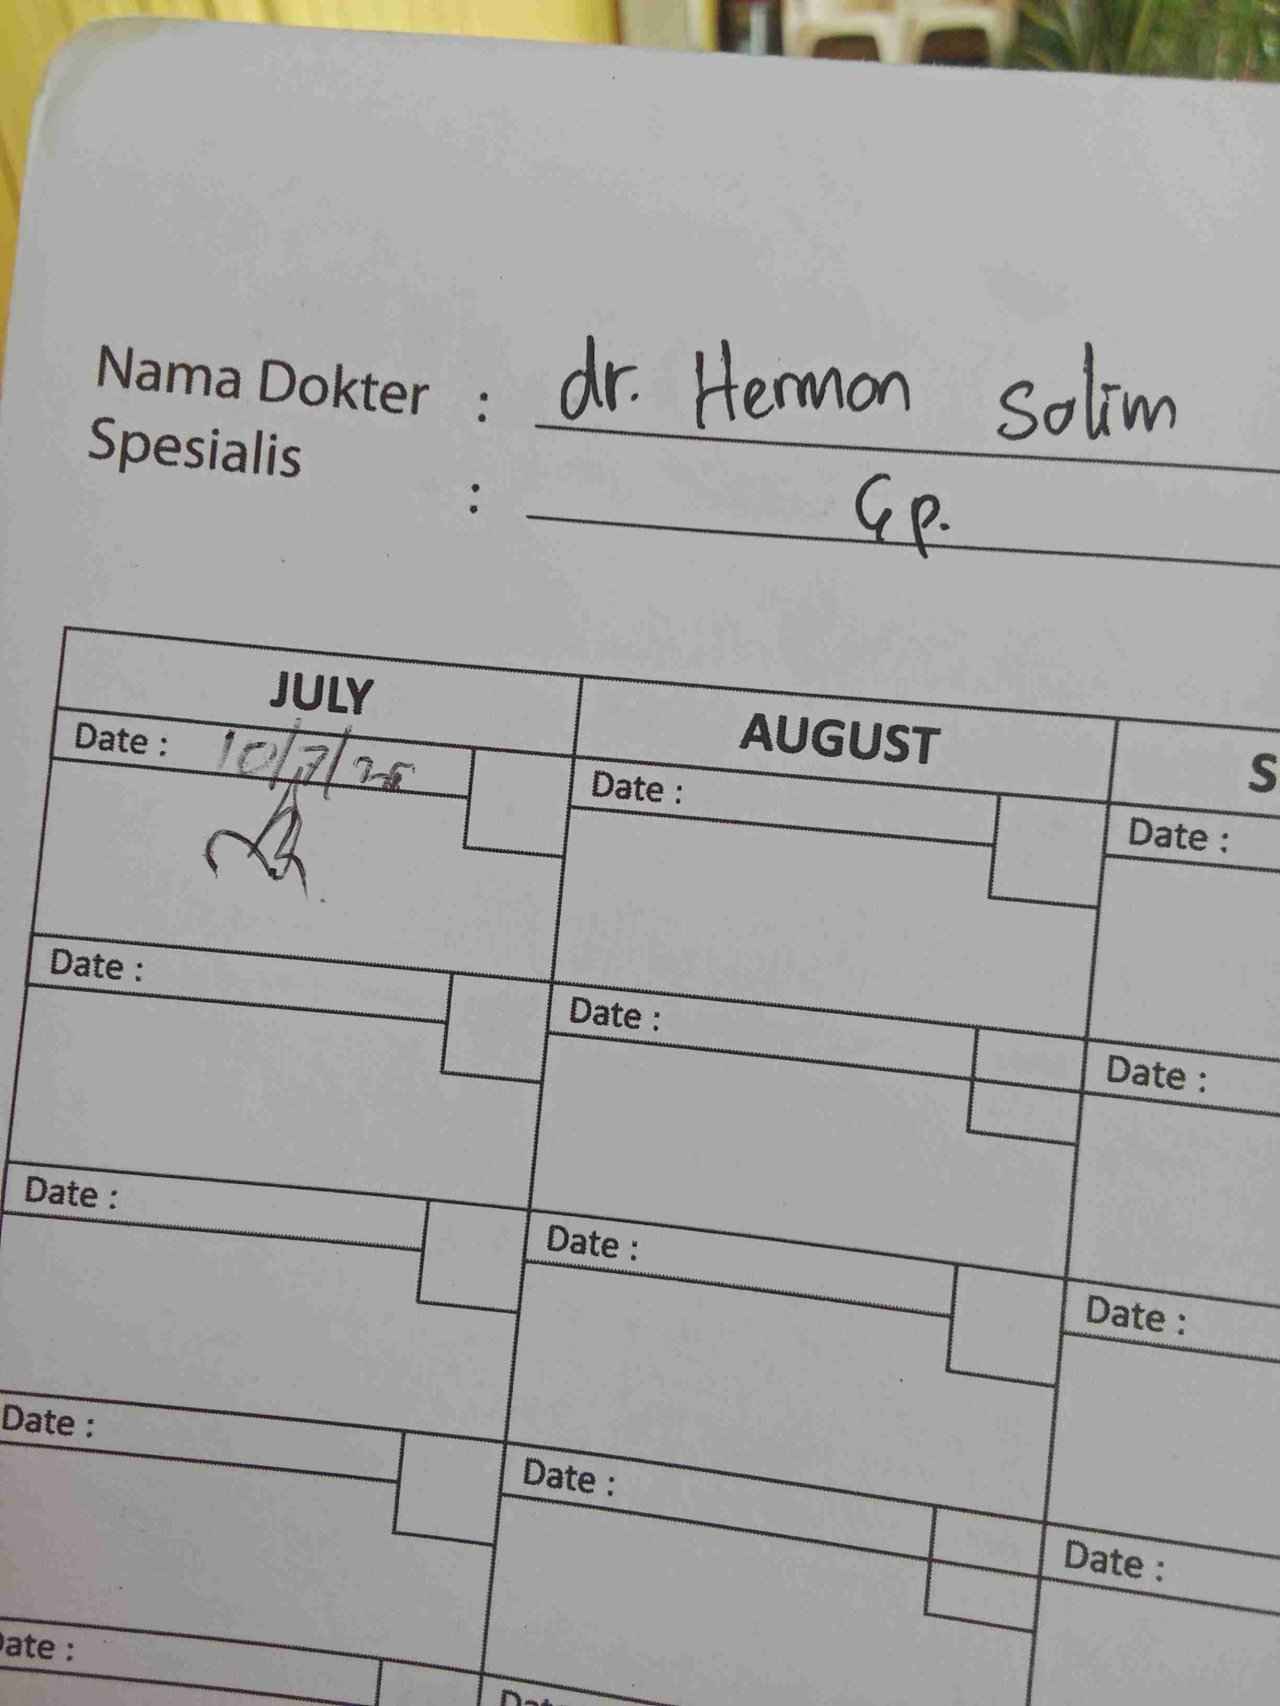 Nama Dokter : dr. Hermon Solim
Spesialis : Gp.
JULY AUGUST S
Date : 10/7/25 Date : Date :
Date : Date : Date :
Date : Date : Date :
Date : Date : Date :
ate : Dat